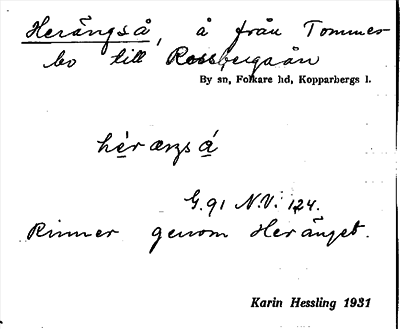 Herängså, å från Tommes-
bo till Rossbergaån
By sn, Folkare hd, Kopparbergs l.
hèræŋså
G.91 N.V. 124.
Rinner genom Heränget.
Karin Hessling 1931